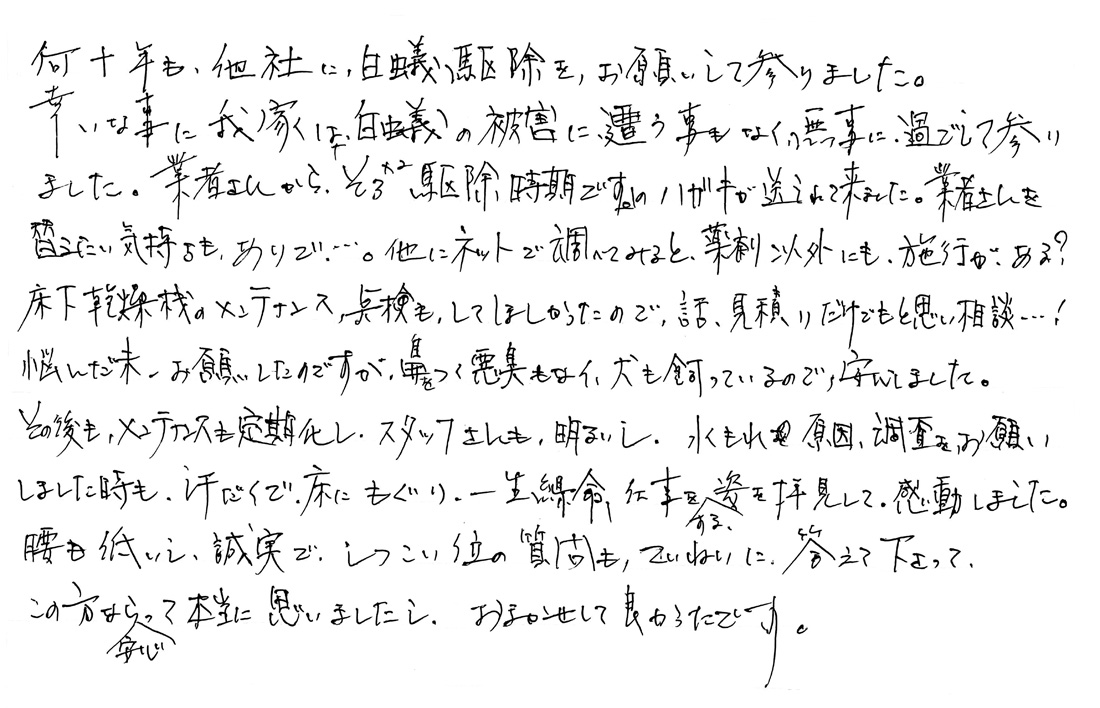 何十年も、他社に、白蟻駆除を、お願いして参りました。
幸いな事に我家は、白蟻の被害に遭う事もなく、無事に、過ごして参り
ました。業者さんから、そろそろ駆除、時期ですのハガキが送られて来ました。業者さんを
替えたい気持ちも、ありで…。他にネットで調べてみると、薬剤以外にも、施行が、ある?
床下乾燥機のメンテナンス、点検も、してほしかったので、話、見積りだけでもと思い相談…!
悩んだ末、お願いしたのですが、鼻をつく悪臭もなく、犬も飼っているので、安心しました。
その後も、メンテナンスも定期化し、スタッフさんも、明るいし、水もれ原因、調査を、お願い
しました時も、汗だくで、床にもぐり、一生縣命、仕事をする、姿を拝見して、感動しました。
腰も低いし、誠実で、しつこい位の質問も、ていねいに、答えて下さって、
この方なら安心って本当に思いましたし、おまかせして良かったです。